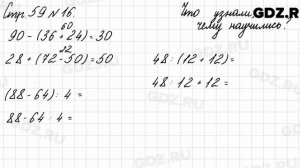 Стр 59 № 16
90 - (36 + 24) = 30
60
28 + (72 - 50) = 50
22
(88 - 64) : 4 =
88 - 64 : 4 =
Что узнали,
чему научились?
48 : (12 + 12) =
48 : 12 + 12 =
GDZ.RU